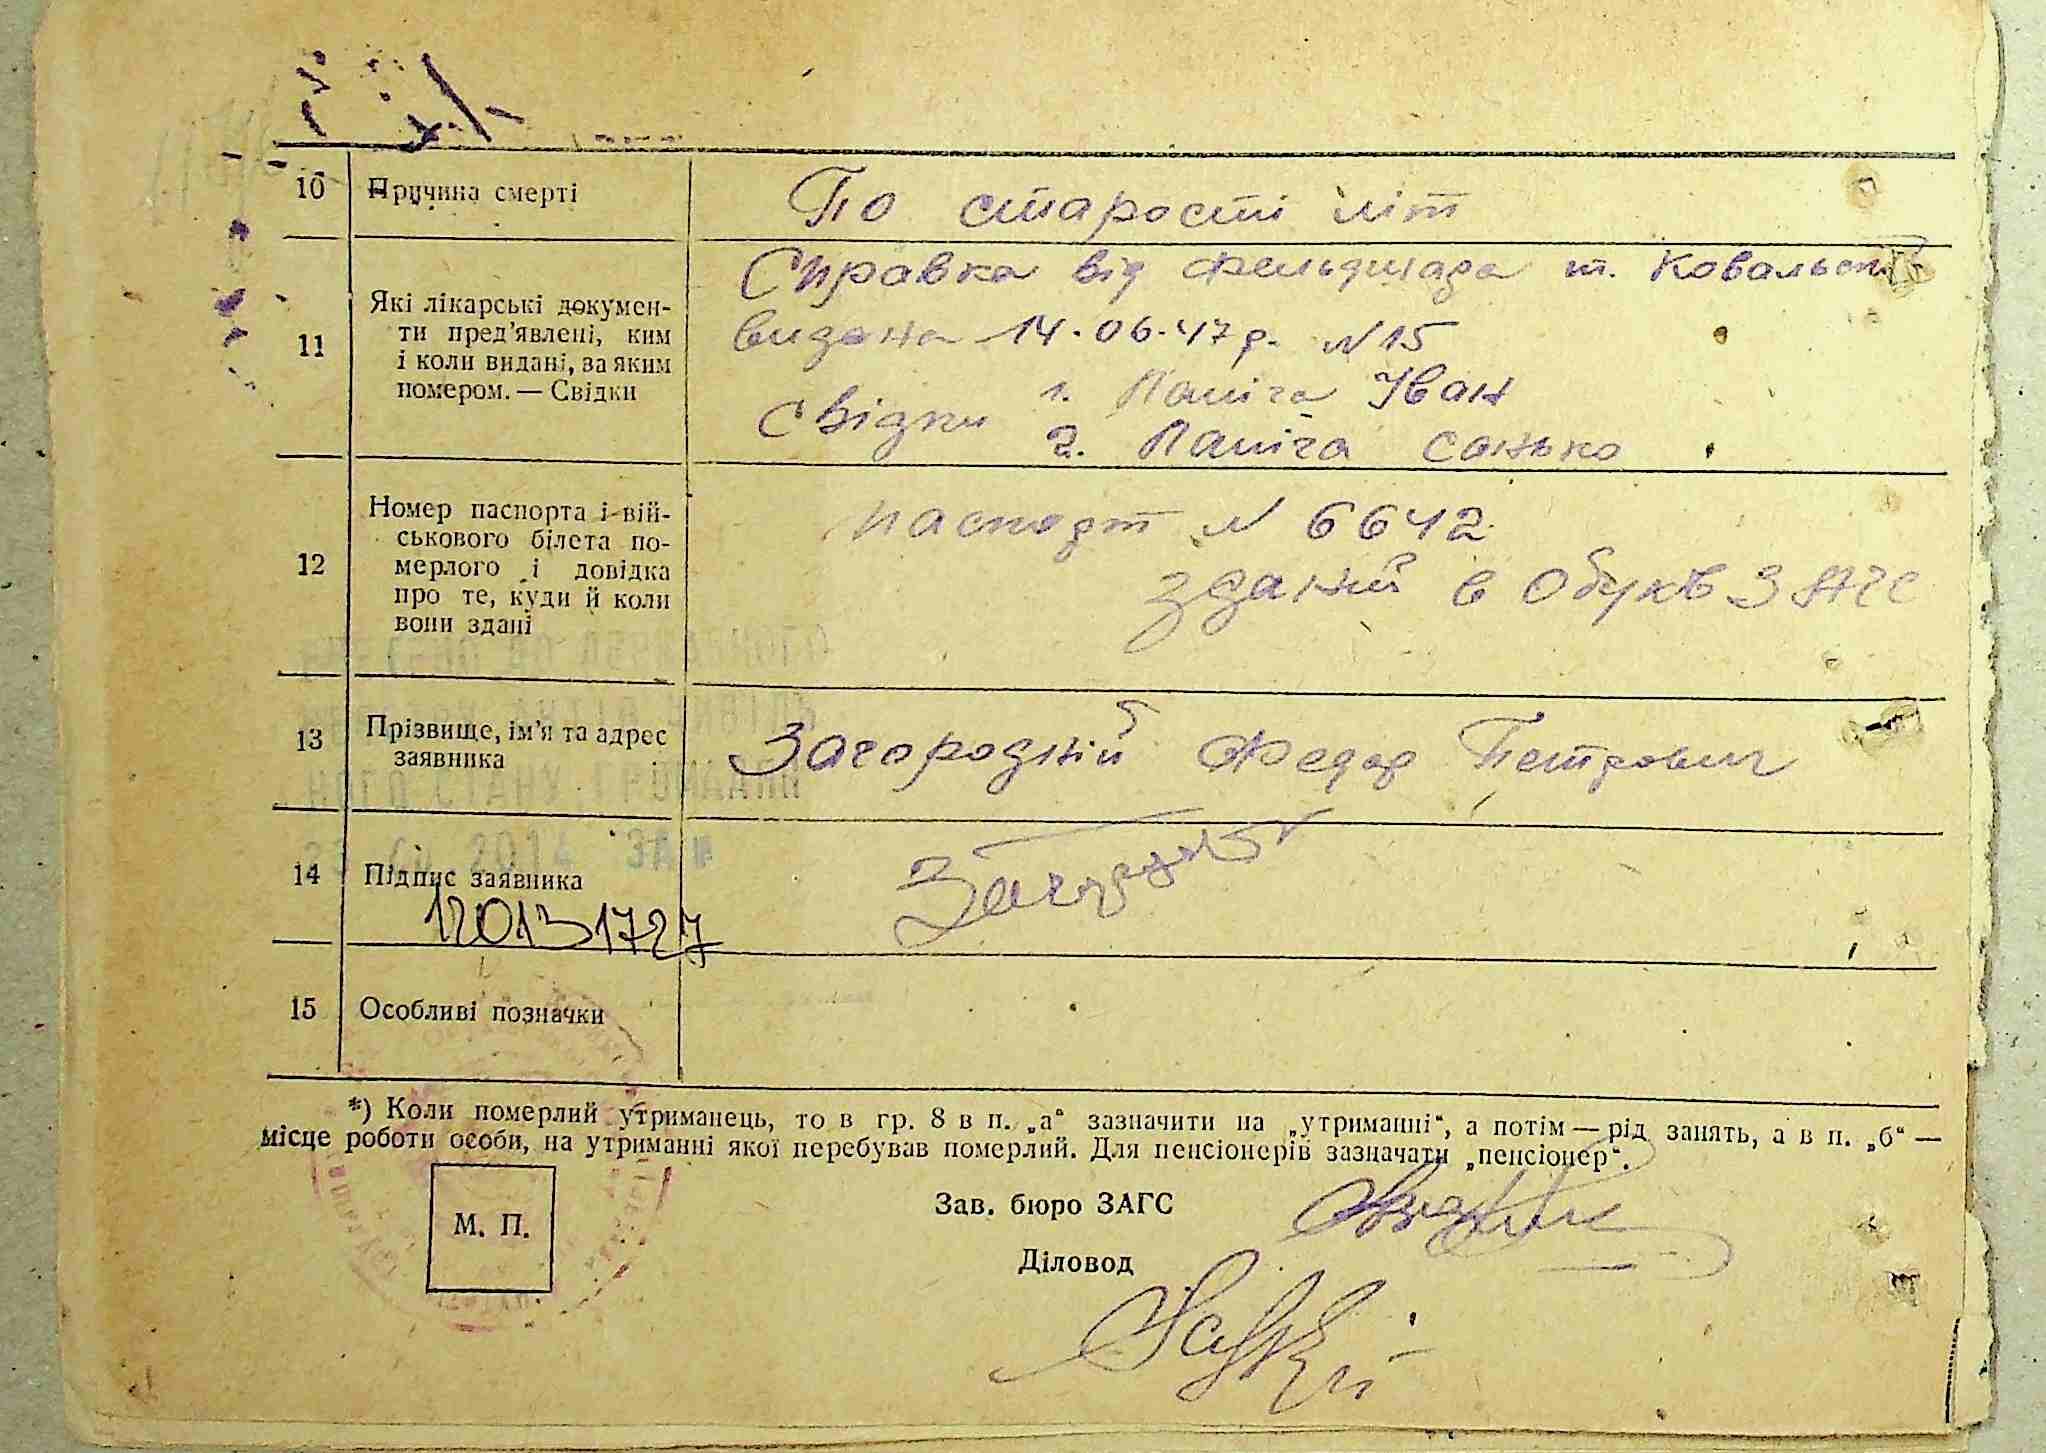 10 Причина смерті По старості літ
11 Які лікарські докумен-
ти пред'явлені, ким
і коли видані, за яким
номером. — Свідки
Справка від фельдшара т.
видана 14.06.47р. N15
Свідки г. Папіга Іван
г. Папіга Санько
12 Номер паспорта і вій-
ськового білета по-
мерлого і довідка
про те, куди й коли
вони здані
паспорт N 6642
зданий в Обухів ЗАГС
13 Прізвище, ім'я та адрес
заявника
Загородній Федор Петрович
14 Підпис заявника
12013 1727
15 Особливі позначки
*) Коли померлий утриманець, то в гр. 8 в п. „а“ зазначити на „утриманні“, а потім — рід занять, а в п. „б“ —
місце роботи особи, на утриманні якої перебував померлий. Для пенсіонерів зазначати „пенсіонер“.
Зав. бюро ЗАГС
М. П.
Діловод